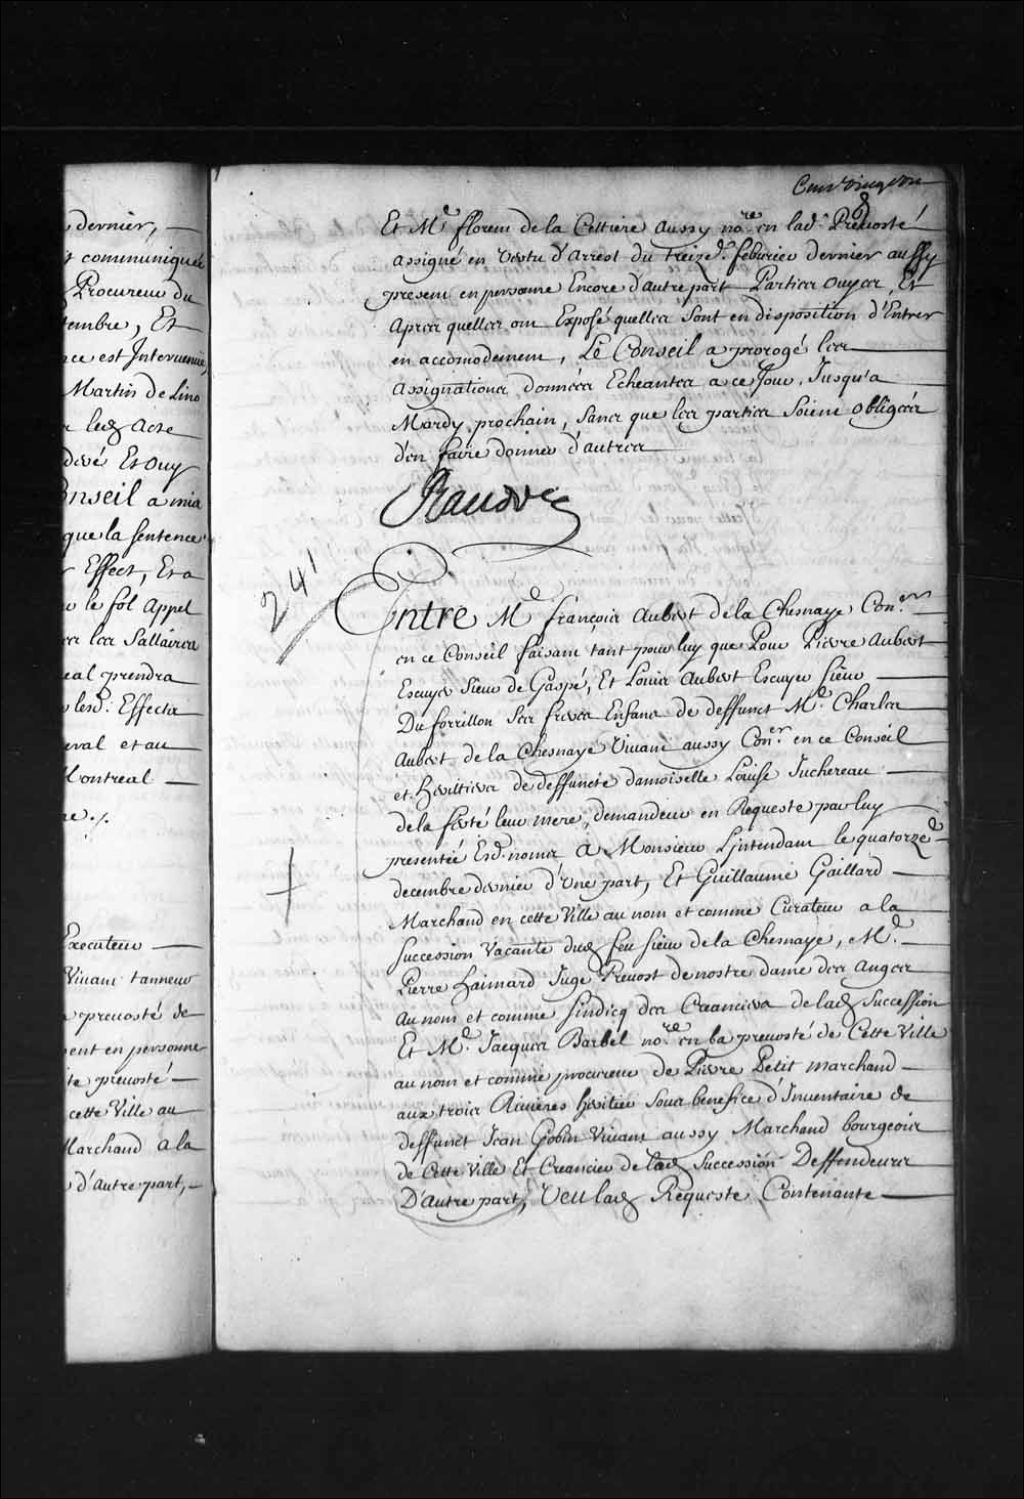 dernier,
communiquée
Procureur du
tembre, Et
ce est Intervenüe,
Martin de Lino
led. Acte
Et Ouy
Conseil a mis
que la sentence
Effect, Et a
le fol Appel
les Sallaires
eal prendra
lesd. Effects
eval et au
Montreal
Executeur
Vivant tanneur
prevosté de
ent en personne
te prevosté
cette Ville au
Marchand a la
d'autre part,
Cent vingt
Et Me. florent de la Cettiere aussy nore. en lad. Prevosté
assigné en vertu d'Arrest du treize. febvrier dernier aussy
present en personne Encore d'autre part Parties ouyes, Et
Apres quelles ont Exposé quelles sont en disposition d'Entrer
en accomodement, Le Conseil a prorogé les
assignations données Echeantes a ce Jour, Jusqu'a
Mardy prochain, sans que les parties soient obligées
d'en faire donner d'autres
Raudot
241
Entre Me. françois Aubert de la Chesnaye Coner.
en ce Conseil faisant tant pour luy que Pour Pierre Aubert
Escuyer Sieur de Gaspé, Et Louis Aubert Escuyer Sieur
Du forrillon Ses freres Enfans de deffunct Me. Charles
Aubert de la Chesnaye Vivant aussy Coner. en ce Conseil
et heritiers de deffuncte damoiselle Louise Juchereau
de la ferté leur mere, demandeur en Requeste par luy
presentée Esd. noms a Monsieur L'intendant le quatorze.
decembre dernier d'Une part, Et Guillaume Gaillard
Marchand en cette Ville au nom et comme Curateur a la
succession Vacante dud. feu sieur de la Chesnaye, Me.
Pierre haimard Juge Prevost de nostre dame des Anges
au nom et comme sindicq des Creanciers de lad. Succession
Et Me. Jacques Barbel nore. en la prevosté de Cette Ville
au nom et comme procureur de Pierre Petit marchand
aux trois Rivieres heritier sous benefice d'Inventaire de
deffunct Jean Gobin Vivant aussy Marchand bourgeois
de Cette Ville Et Creancier de lad. Succession Deffendeurs
D'autre part, Veu lad. Requeste Contenante